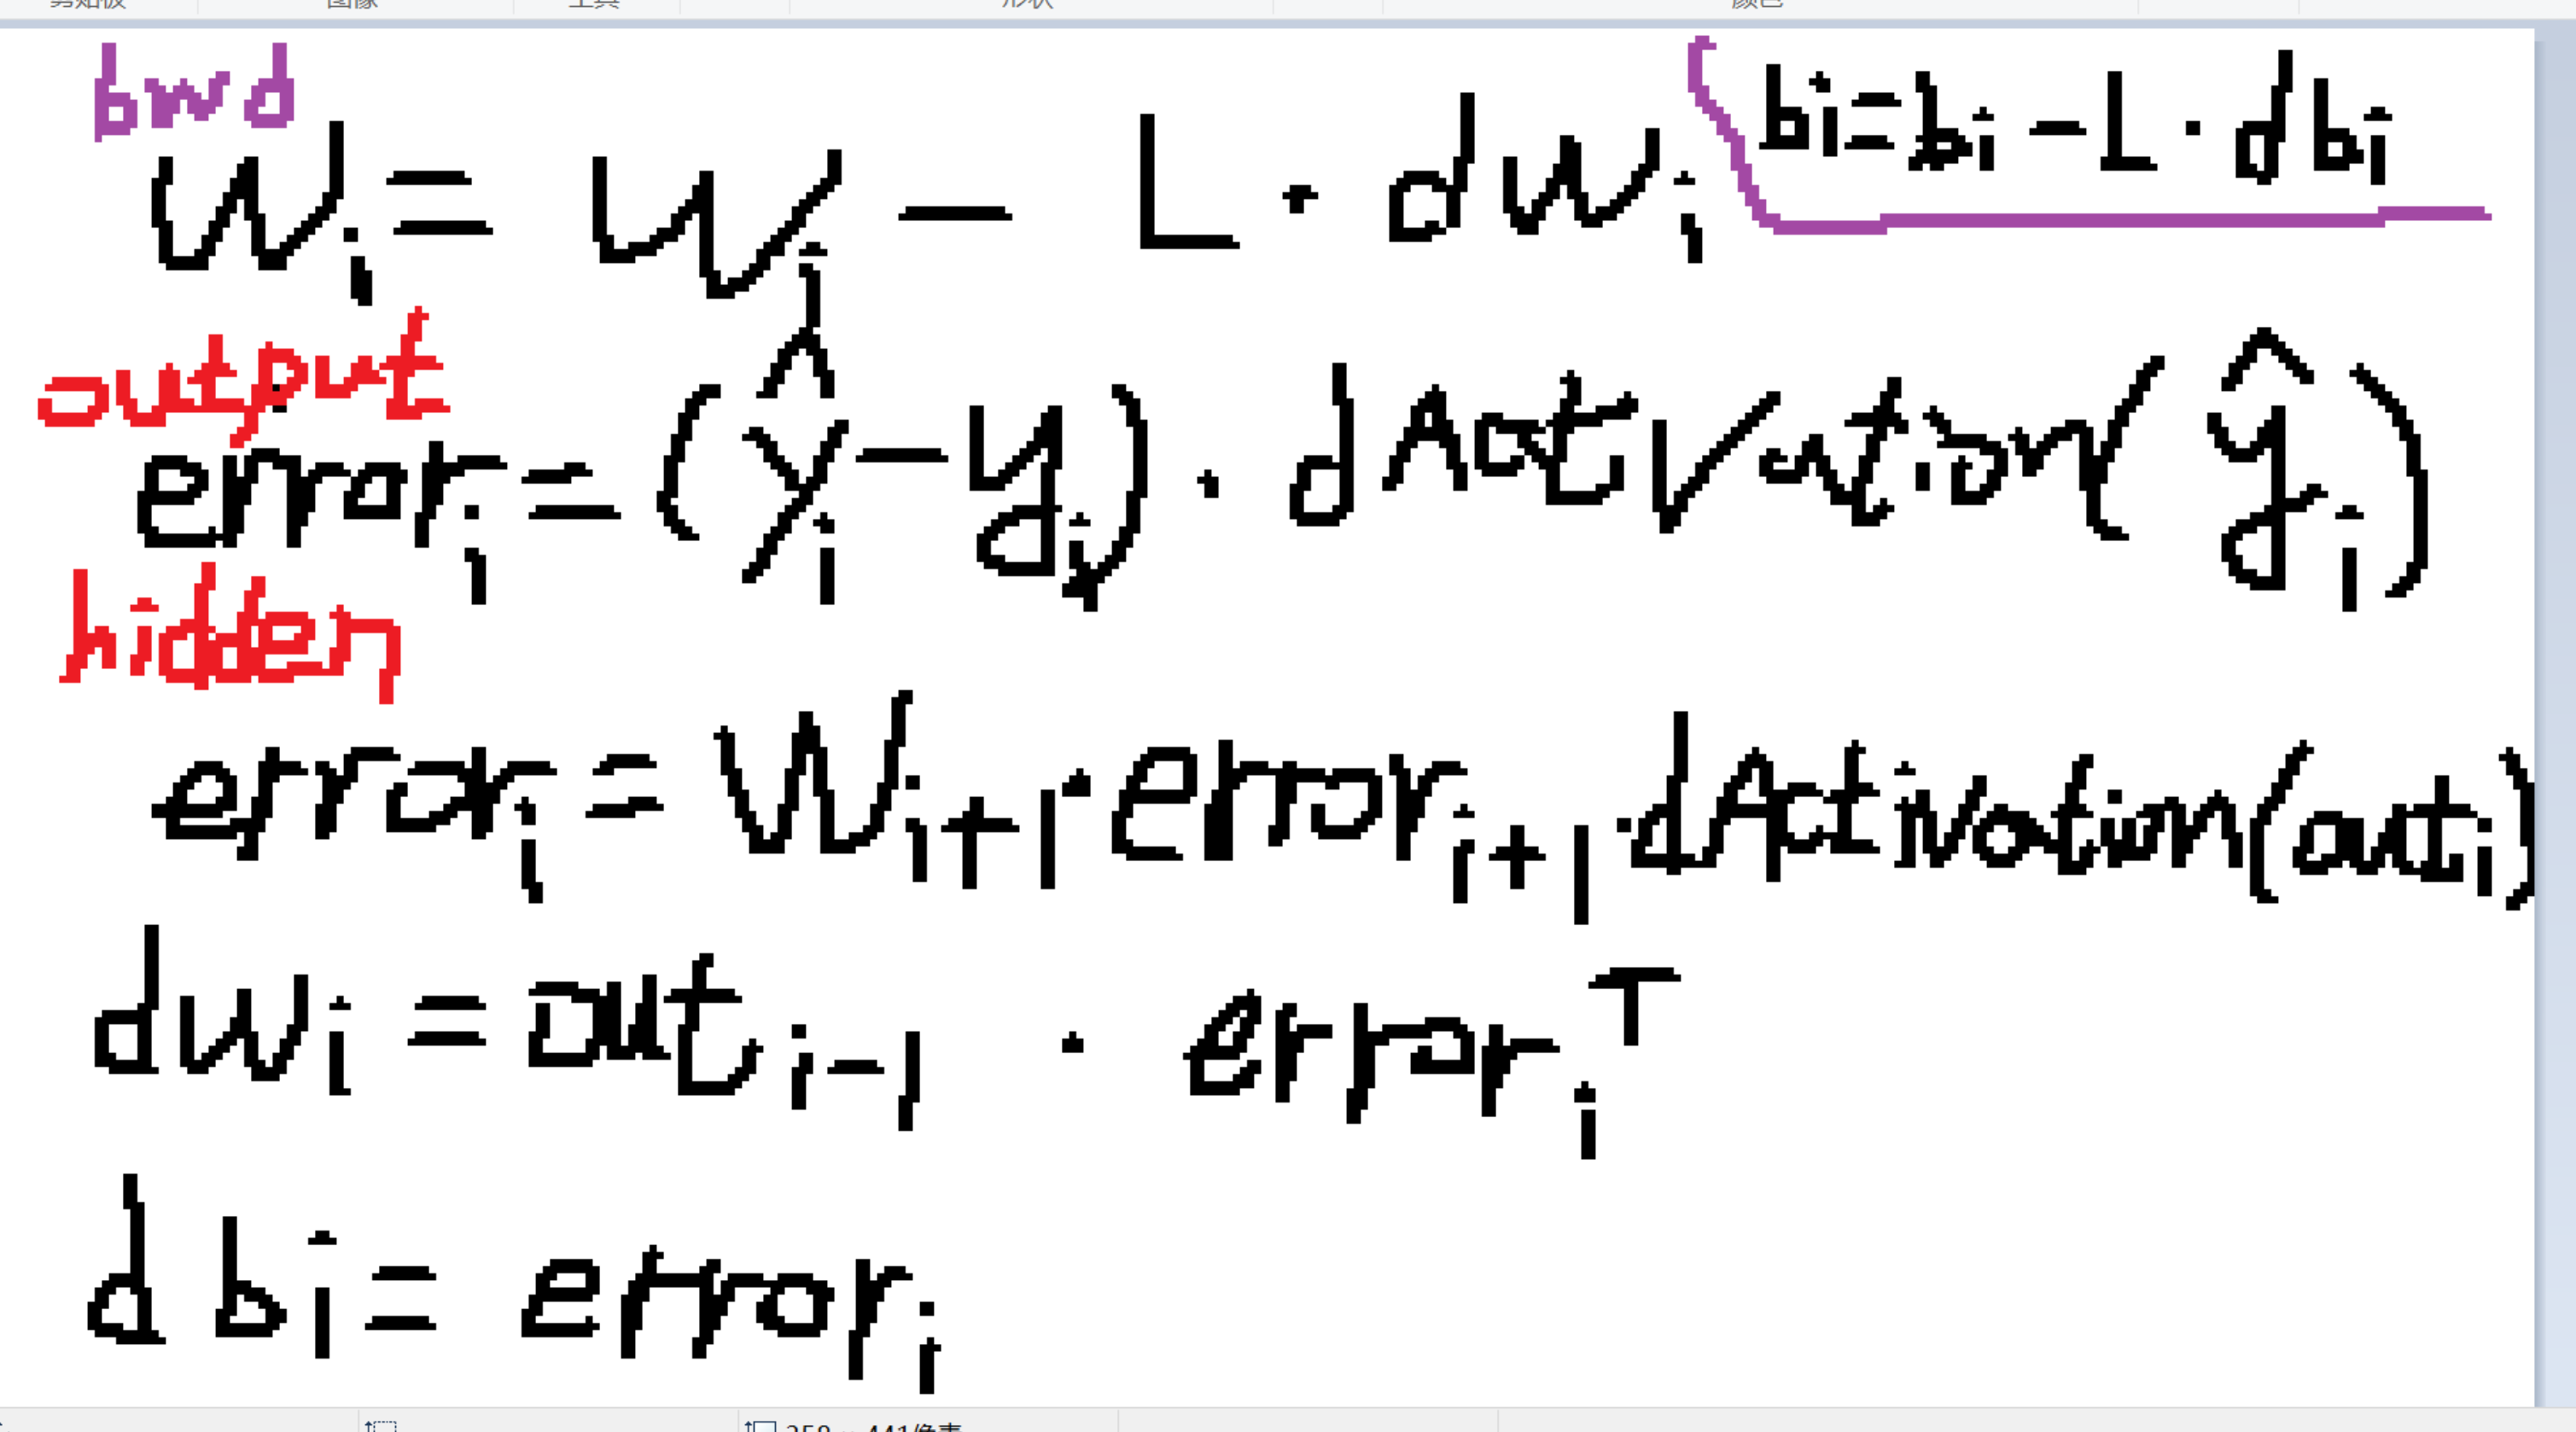 剪贴板 图像 工具 形状 颜色
bwd
bi=bi-L·dbi
Wi=Wi-L·dWi
output
errori=(ŷi-yi)·dActivation(ŷi)
hidden
errori=Wi+1·errori+1·dActivation(outi)
dwi=outi-1·errori^T
dbi=errori